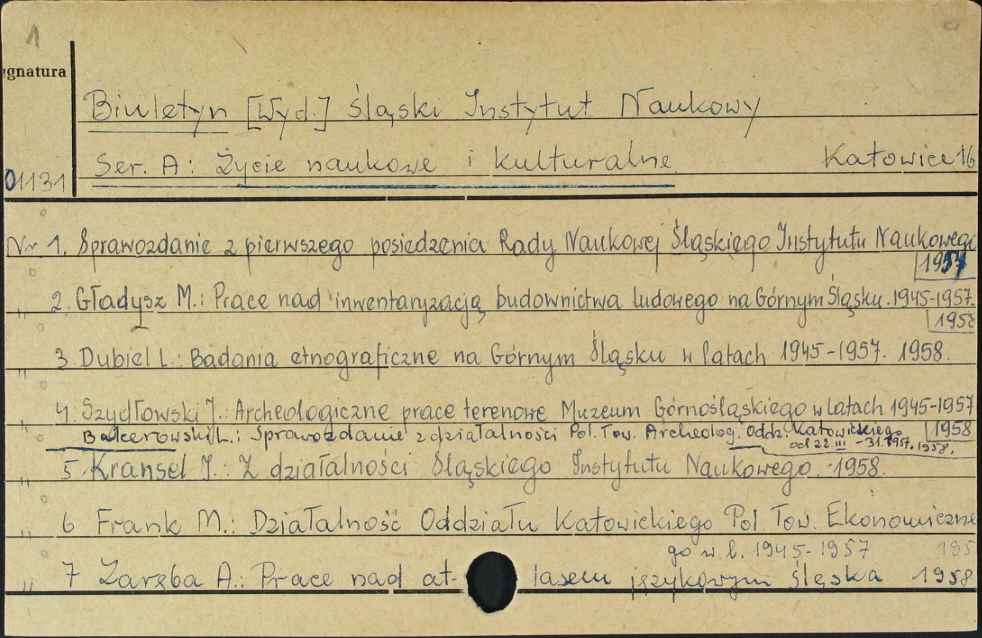 1
gnatura
Biuletyn [Wyd.] Śląski Instytut Naukowy
Ser. A: Życie naukowe i kulturalne Katowice 16
01131
Nr 1. Sprawozdanie z pierwszego posiedzenia Rady Naukowej Śląskiego Instytutu Naukowego
1957
„ 2. Gładysz M.: Prace nad inwentaryzacją budownictwa ludowego na Górnym Śląsku. 1945-1957.
1958
„ 3 Dubiel L.: Badania etnograficzne na Górnym Śląsku w latach 1945-1957. 1958.
„ 4 Szydłowski J.: Archeologiczne prace terenowe Muzeum Górnośląskiego w latach 1945-1957
1958
L.: Sprawozdanie z działalności Pol. Tow. Archeolog. Oddz. Katowickiego
od 22 III - 31. 1957. 1958.
„ 5 Kransel J.: Z działalności Śląskiego Instytutu Naukowego. 1958.
„ 6 Frank M.: Działalność Oddziału Katowickiego Pol Tow. Ekonomiczne
go w l. 1945-1957 195
„ 7 Zaręba A.: Prace nad at- lasem językowym śląska 1958